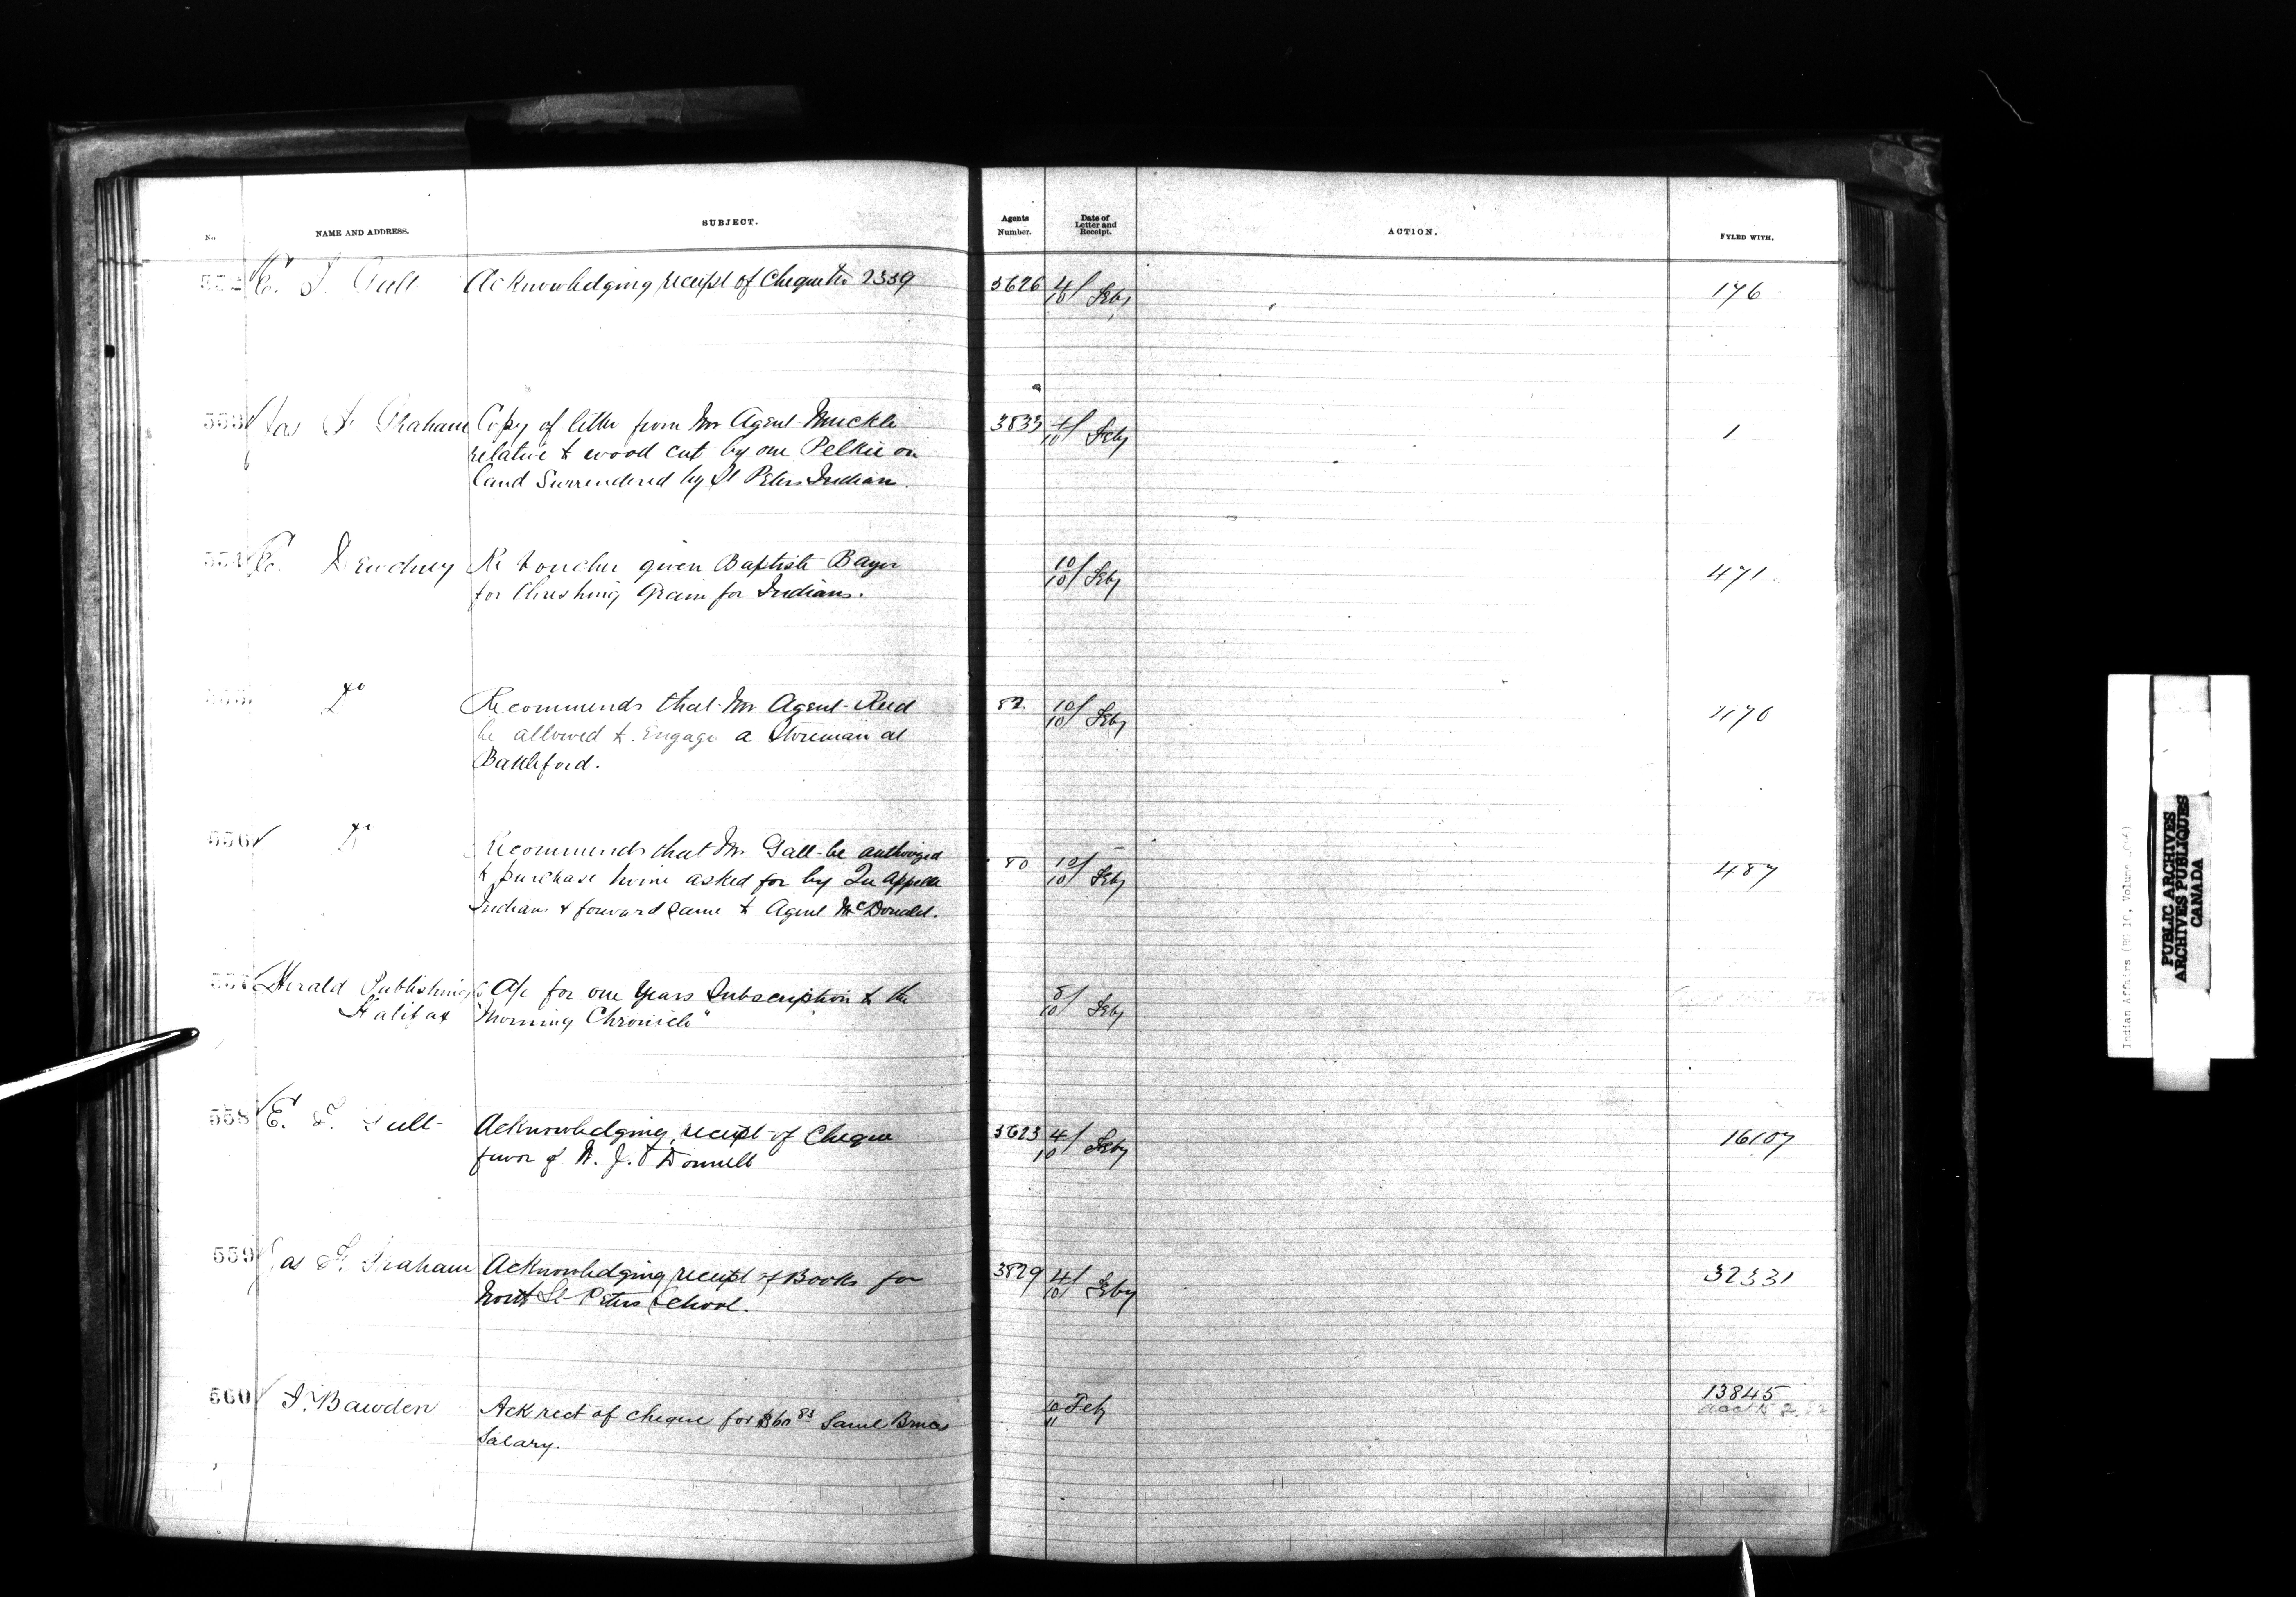 No.
NAME AND ADDRESS.
SUBJECT.
Agents Number.
Date of Letter and Receipt.
ACTION.
FYLED WITH.
Acknowledging receipt of Cheque No 2339
3626 4/10 Feby
176
553 Jas F Graham Copy of letter from Mr Agent Muckle
3833 4/10 Feby
1
relative to wood cut by one Pelkie on
land Surrendered by St Peters Indians.
554 E. Dewdney Re Voucher given Baptiste Bayer
10/10 Feby
471
for threshing Grain for Indians.
Do Recommends that Mr Agent Reid
82 10/10 Feby
be allowed to Engage a Storeman at
Battleford.
556 Do Recommends that Mr Galt be authorized
80 10/10 Feby
487
to purchase twine asked for by Qu'Appelle
Indians & forward same to Agent McDonald.
557 Herald Publishing Co A/c for one Years Subscription to the
8/10 Feby
Halifax "Morning Chronicle"
558 E. T. Galt Acknowledging receipt of Cheque
3623 4/10 Feby
16107
favor of
559 Jas F. Graham Acknowledging receipt of Books for
3829 4/10 Feby
32331
North St Peters School.
560 J. Bawden Ack rect of cheque for $60 83 Saml
10/11 Feb
13845
Salary.
Indian Affairs (RG 10, Volume
PUBLIC ARCHIVES
ARCHIVES PUBLIQUES
CANADA